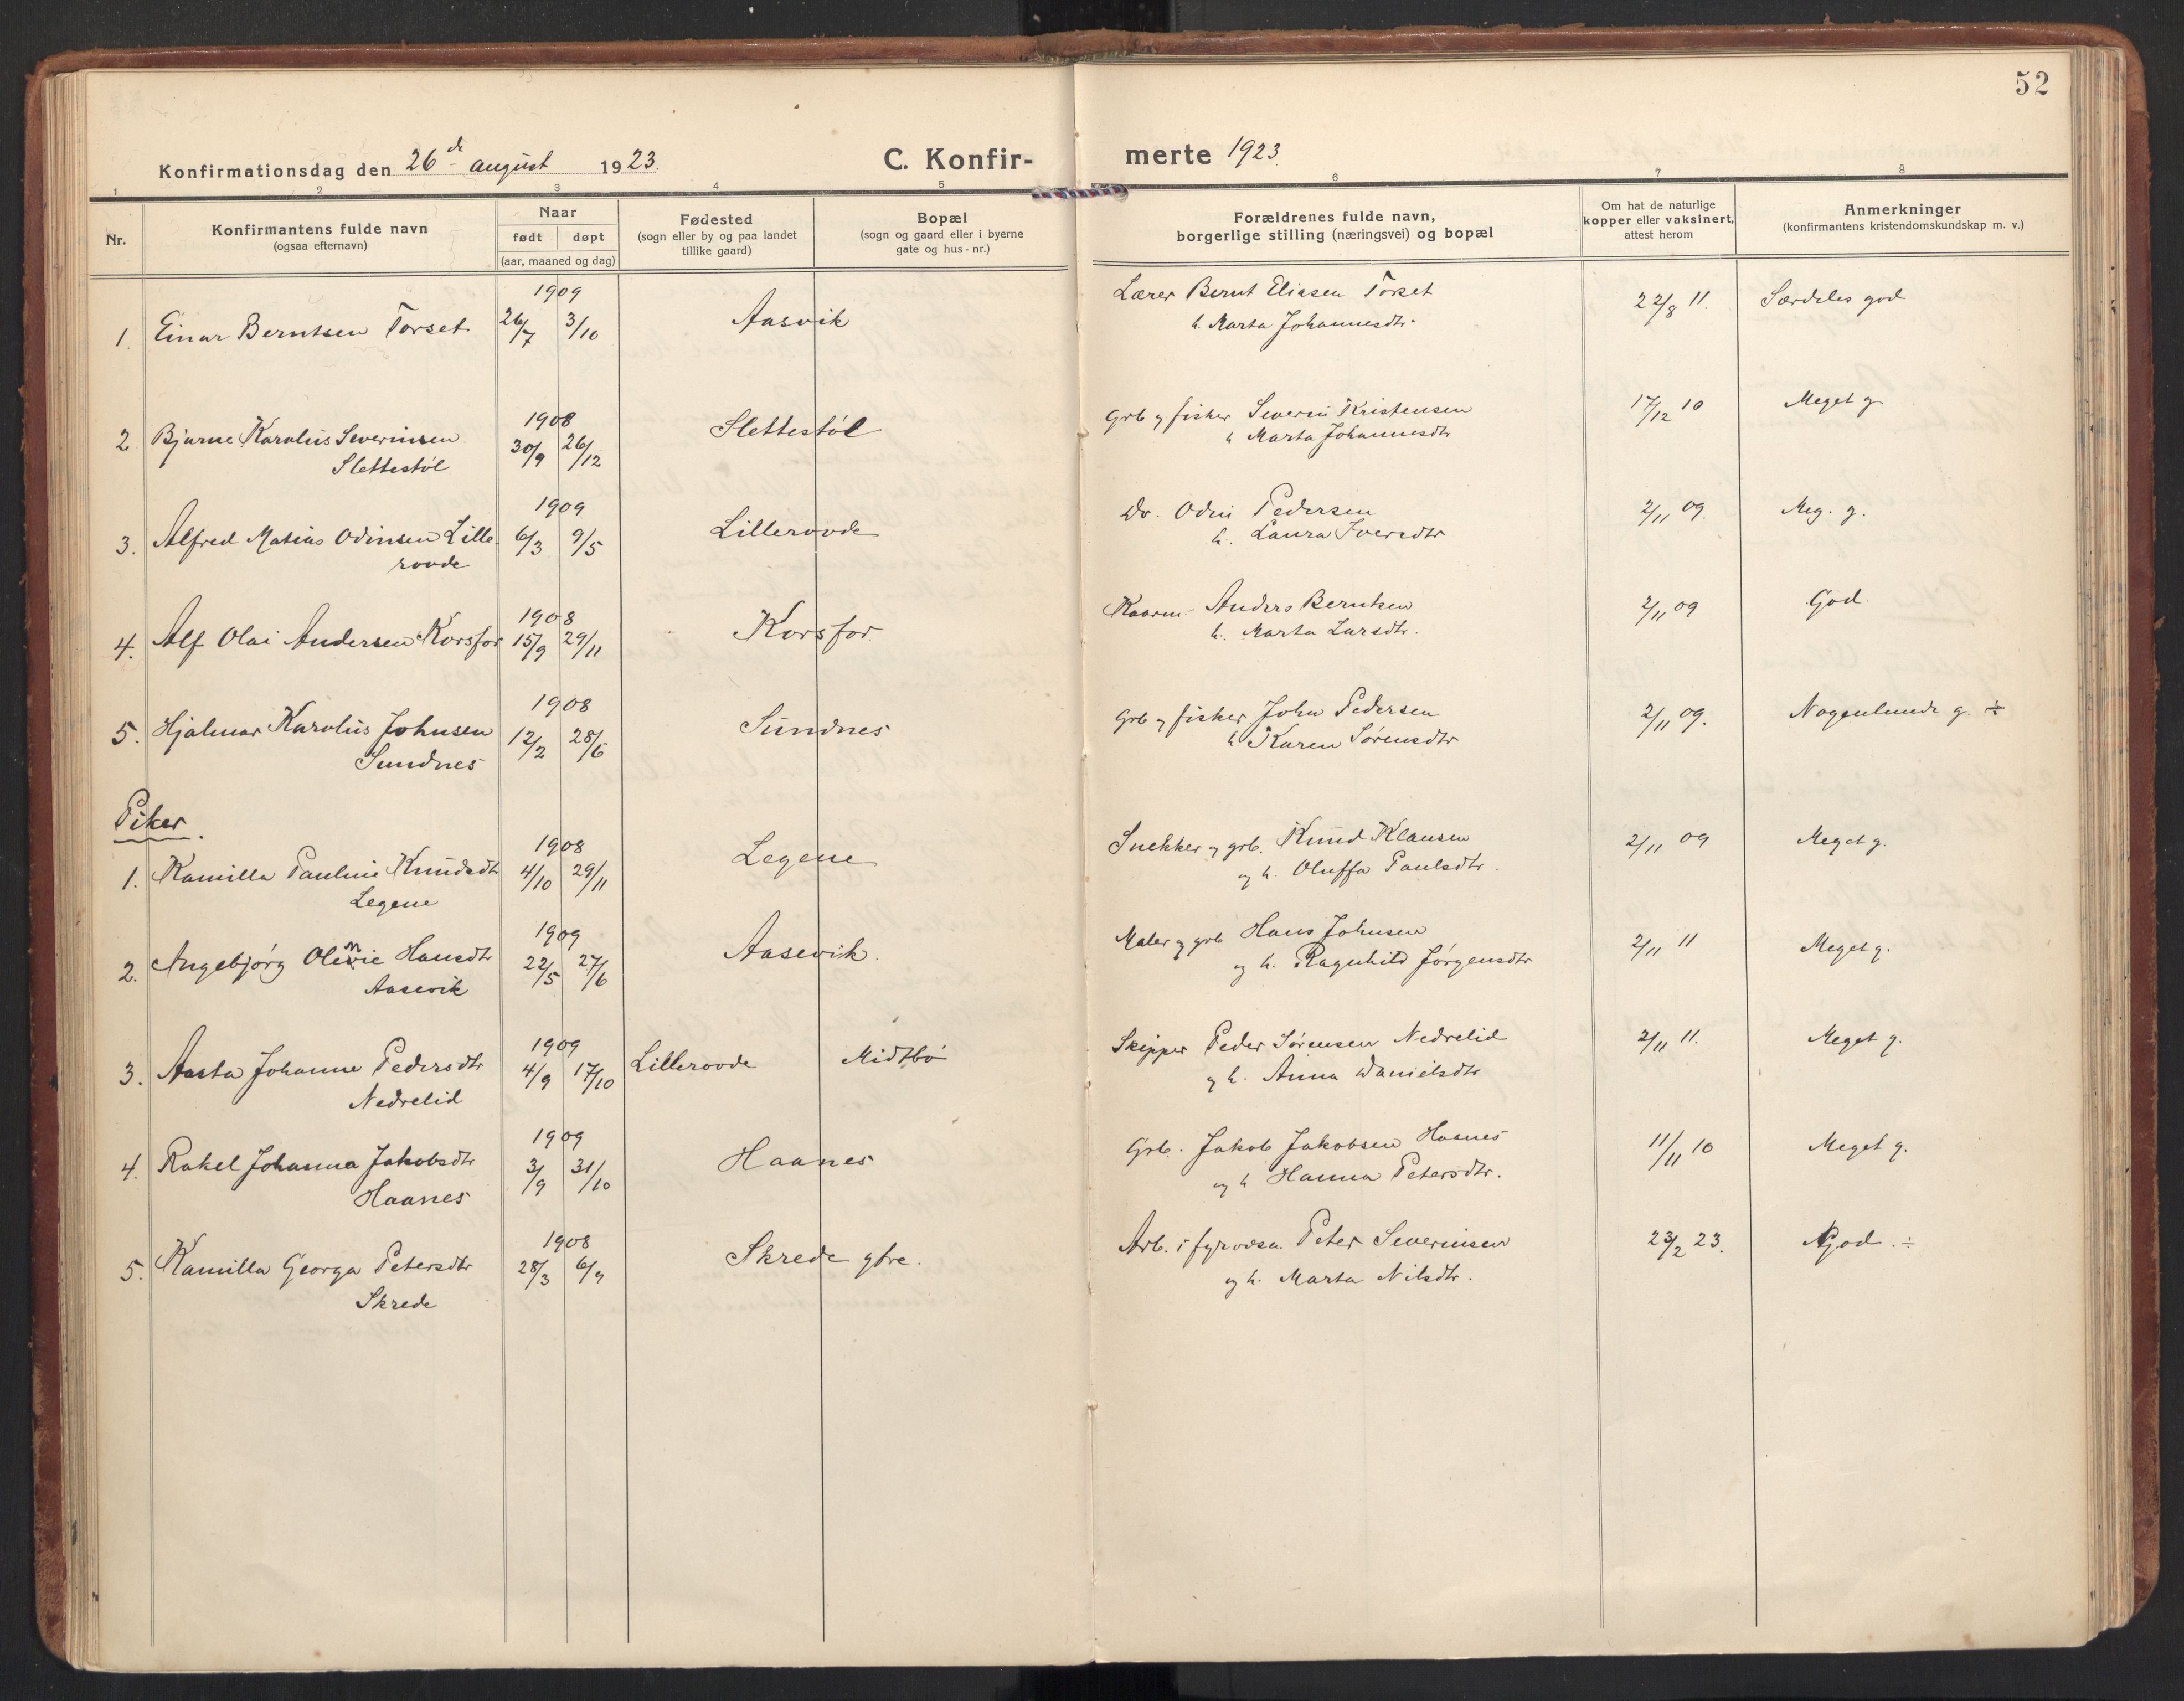 52
Konfirmationsdag den 26de august 1923.
C. Konfir-
merte 1923.
1 2 3 4 5 6 7 8
Nr.
Konfirmantens fulde navn
(ogsaa efternavn)
Naar
født døpt
(aar, maaned og dag)
Fødested
(sogn eller by og paa landet
tillike gaard)
Bopæl
(sogn og gaard eller i byerne
gate og hus-nr.)
Forældrenes fulde navn,
borgerlige stilling (næringsvei) og bopæl
Om hat de naturlige
kopper eller vaksinert,
attest herom
Anmerkninger
(konfirmantens kristendomskundskap m. v.)
1909 Lærer Bernt Eliasen Torset
1. Einar Berntsen Torset 26/7 3/10 Aasvik h. Marta Johannesdtr. 22/8 11. Særdeles god
1908 Grb og fisker Severin Kristensen 17/12 10 Meget g.
2 Bjarne Karolus Severinsen 30/9 26/12 Slettestøl h Marta Johannesdtr
Slettestøl
1909 Odin Pedersen 2/11 09. Meg. g.
3. Alfred Matias Odinsen Lille- 6/3 9/5 Lilleroode h. Laura Iversdtr
roode
1908 Kaarm. Anders Berntsen 2/11 09 God
4. Alf Olai Andersen Korsfor 15/9 29/11 Korsfor. h. Marta Larsdtr.
1908 Grb og fisker John Pedersen 2/11 09. Nogenlunde g. ÷
5. Hjalmar Karolus Johnsen 12/2 28/6 Sundnes h Karen Sørensdtr
Sundnes
Piker.
1908 Snekker og grb. Knud Klausen 2/11 09 Meget g.
1. Kamilla Pauline Knudsdtr 4/10 29/11 Legene og h. Oluffa Paulsdtr.
Legene
1909 Maler og grb Hans Johnsen 2/11 11 Meget g.
2. Angebjørg Oline Hansdtr 22/5 27/6 Aasevik. og h. Ragnhild Jørgensdtr
Aasevik
1909 Skipper Peder Sørensen Nedrelid 2/11 11. Meget g.
3. Aasta Johanne Pedersdtr 4/9 17/10 Lilleroode Midtbø og h. Anna Danielsdtr
Nedrelid
1909 Grb. Jakob Jakobsen Haanes 11/11 10 Meget g.
4. Rakel Johanna Jakobsdtr 3/9 31/10 Haanes og h Hanna Petersdtr.
Haanes
1908 Arb. i fyrvæsn. Peter Severinsen 23/2 23. God. ÷
5. Kamilla Georga Petersdtr 28/3 6/9 Skrede ytre. og h. Marta Nilsdtr.
Skrede